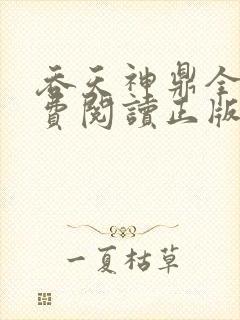 吞天神鼎全
費閱讀正版
一夏枯草